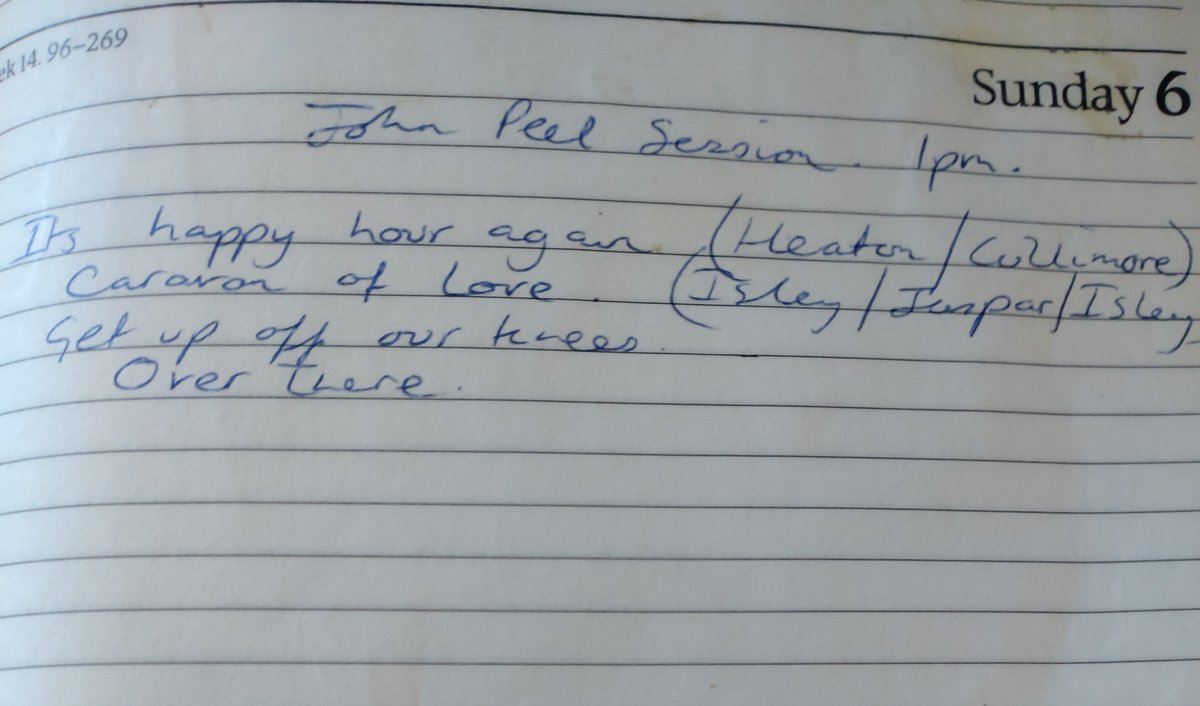 ek 14. 96–269
Sunday 6
John Peel Session. 1pm.
Its happy hour again (Heaton/Cullimore)
Caravan of Love. (Isley/Jaspar/Isley
Get up off our knees.
Over there.